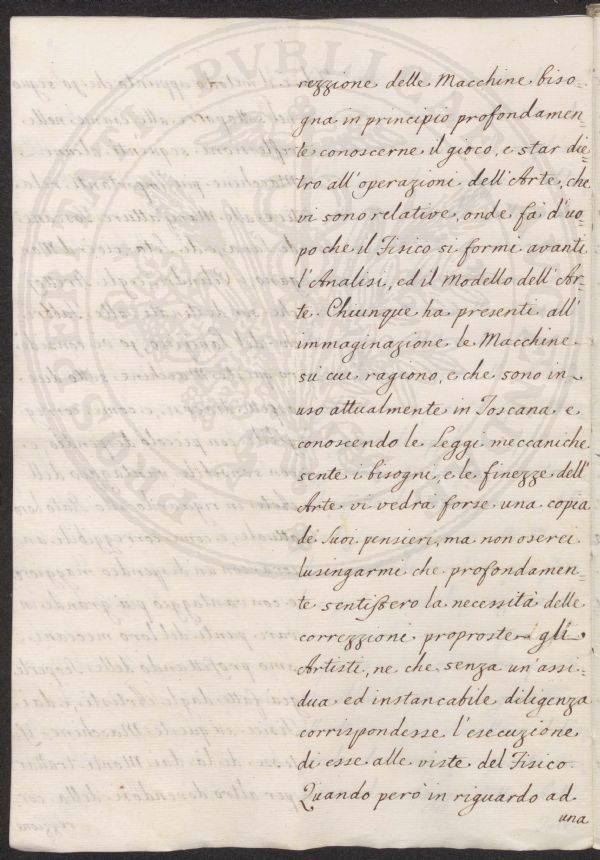 rezzione delle Macchine biso-
gna in principio profondamen-
te conoscerne il gioco, e star die-
tro all'operazioni dell'Arte, che
vi sono relative, onde fà d'uo-
po che il Fisico si formi avanti
l'Analisi, ed il Modello dell'Ar-
te. Chiunque ha presenti all'
immaginazione le Macchine
sù cui ragiono, e che sono in
uso attualmente in Toscana e
conoscendo le Leggi meccaniche
sente i bisogni, e le finezze dell'
Arte vi vedrà forse una copia
de suoi pensieri, ma non oserei
lusingarmi che profondamen-
te sentissero la necessità delle
correzzioni proproste gli
Artisti, ne che senza un'assi-
dua ed instancabile diligenza
corrispondesse l'esecuzione
di esse alle viste del Fisico.
Quando però in riguardo ad
una